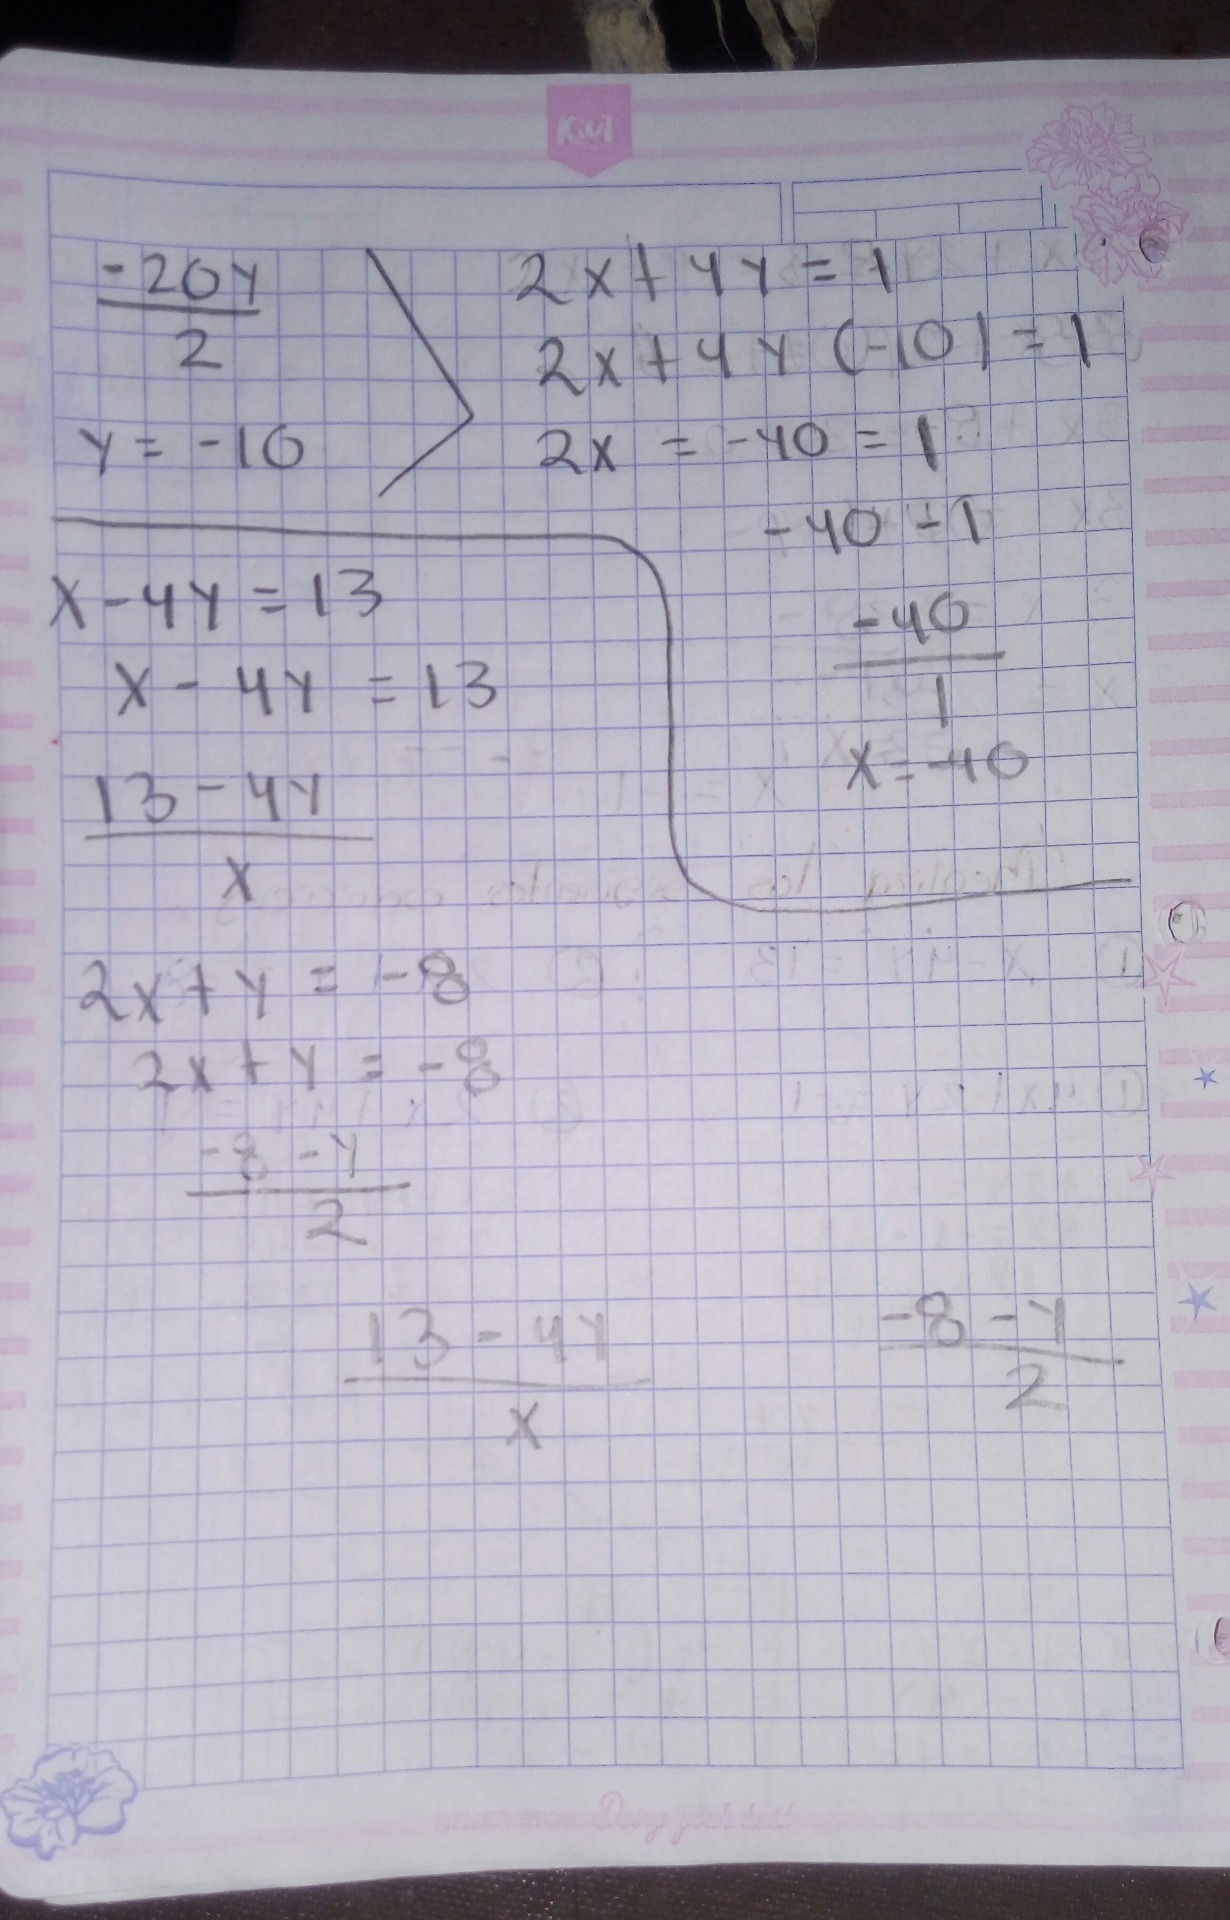 Kiut
-20y
2
y = -10
2x + 4y = 1
2x + 4y (-10) = 1
2x = -40 = 1
-40 - 1
-40
1
x = -40
x - 4y = 13
x - 4y = 13
13 - 4y
x
2x + y = -8
2x + y = -8
-8 - y
2
13 - 4y
x
-8 - y
2